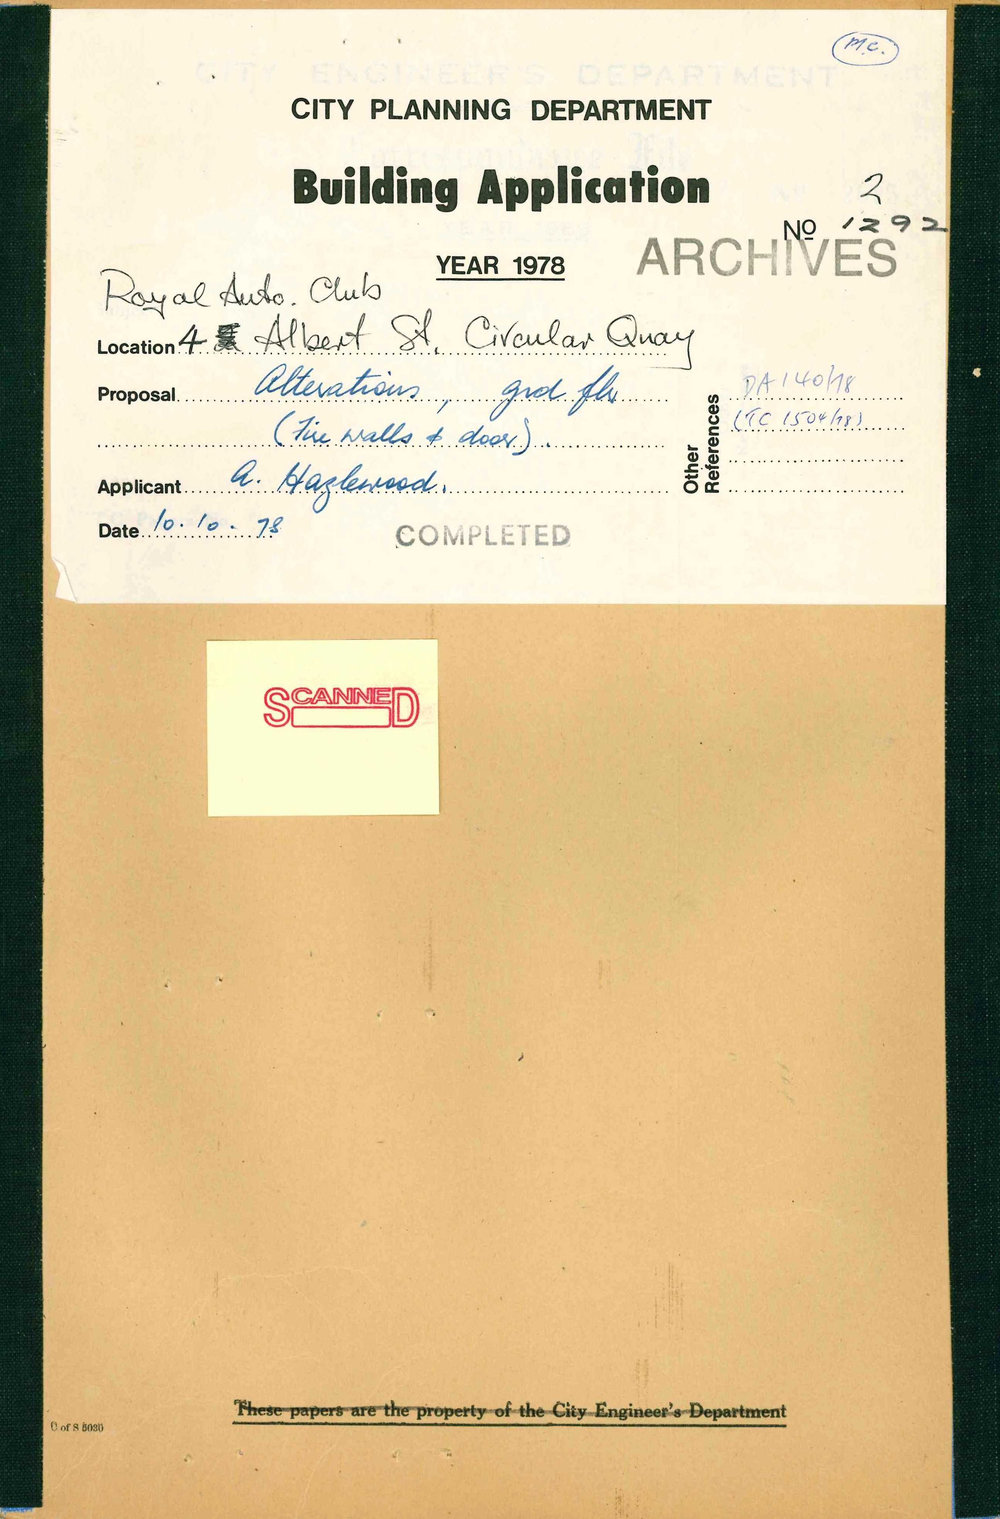 M.C.
CITY ENGINEER'S DEPARTMENT
CITY PLANNING DEPARTMENT
Building Application
2
Nº 1292
ARCHIVES
YEAR 1978
Royal Auto. Club
Location 4 Albert St, Circular Quay
Proposal Alterations, grd flr
(Fire walls & door).
Other References
DA 140/78
(TC 1504/78)
Applicant A. Hazlewood.
Date 10.10.78
COMPLETED
SCANNED
These papers are the property of the City Engineer's Department
C of S 5030